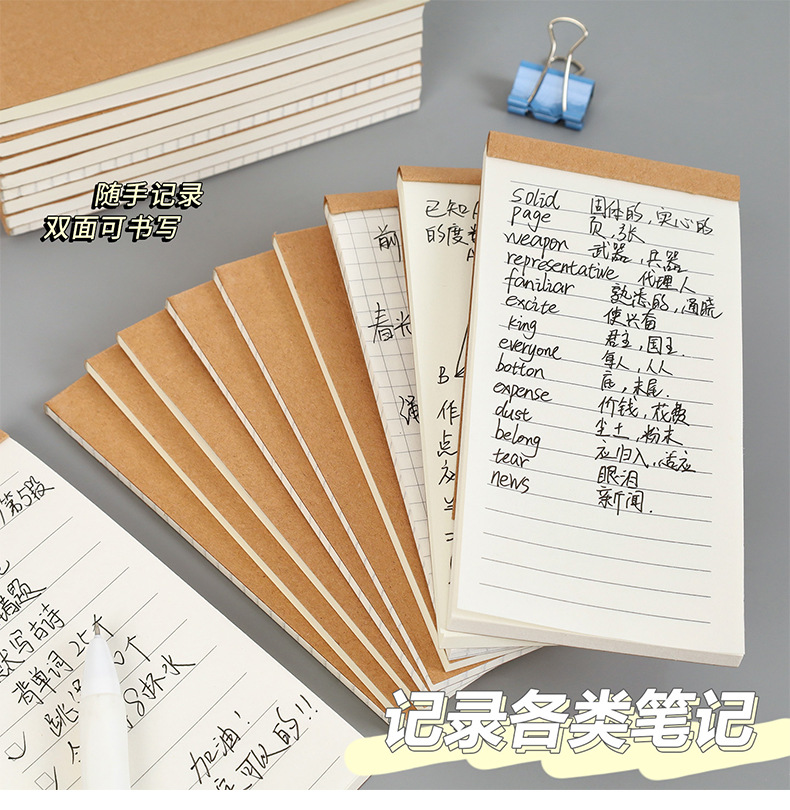 随手记录
双面可书写
solid 固体的，实心的
page 页，张
weapon 武器，兵器
representative 代理人
familiar 熟悉的，通晓
excite 使兴奋
king 君主，国王.
everyone 每人，人人
botton 底，末尾.
expense 价钱，花费
dust 尘土，粉末
belong 应归入，适应
tear 眼泪
news 新闻.
已知
的度数
B
作
点
前
春
第5段
错题
默写古诗
背单词 25个
跳
8杯水
加油!
可以的!!!
记录各类笔记